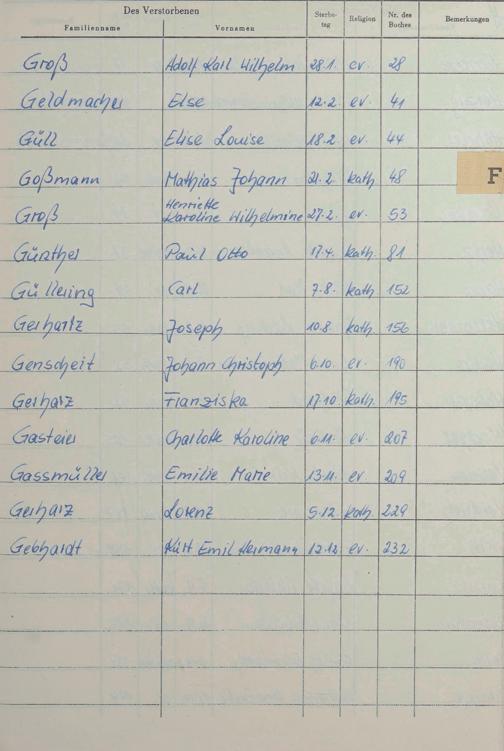 Des Verstorbenen
Familienname Vornamen Sterbe-tag Religion Nr. des Buches Bemerkungen
Groß Adolf Karl Wilhelm 28.1. ev. 28
Geldmacher Else 12.2. ev. 41
Güll Elise Louise 18.2. ev. 44
Goßmann Mathias Johann 21.2. kath 48
F
Groß Henriette Karoline Wilhelmine 27.2. ev. 53
Günther Paul Otto 17.4. kath. 81
Güllering Carl 7.8. kath 152
Gerhartz Joseph 10.8. kath. 156
Genscheit Johann Christoph 6.10. ev. 190
Gerharz Franziska 17.10. kath. 195
Gasteier Charlotte Karoline 6.11. ev. 207
Gassmüller Emilie Marie 13.11. ev 209
Gerharz Lorenz 5.12. kath. 229
Gebhardt Kurt Emil Hermann 12.12 ev. 232